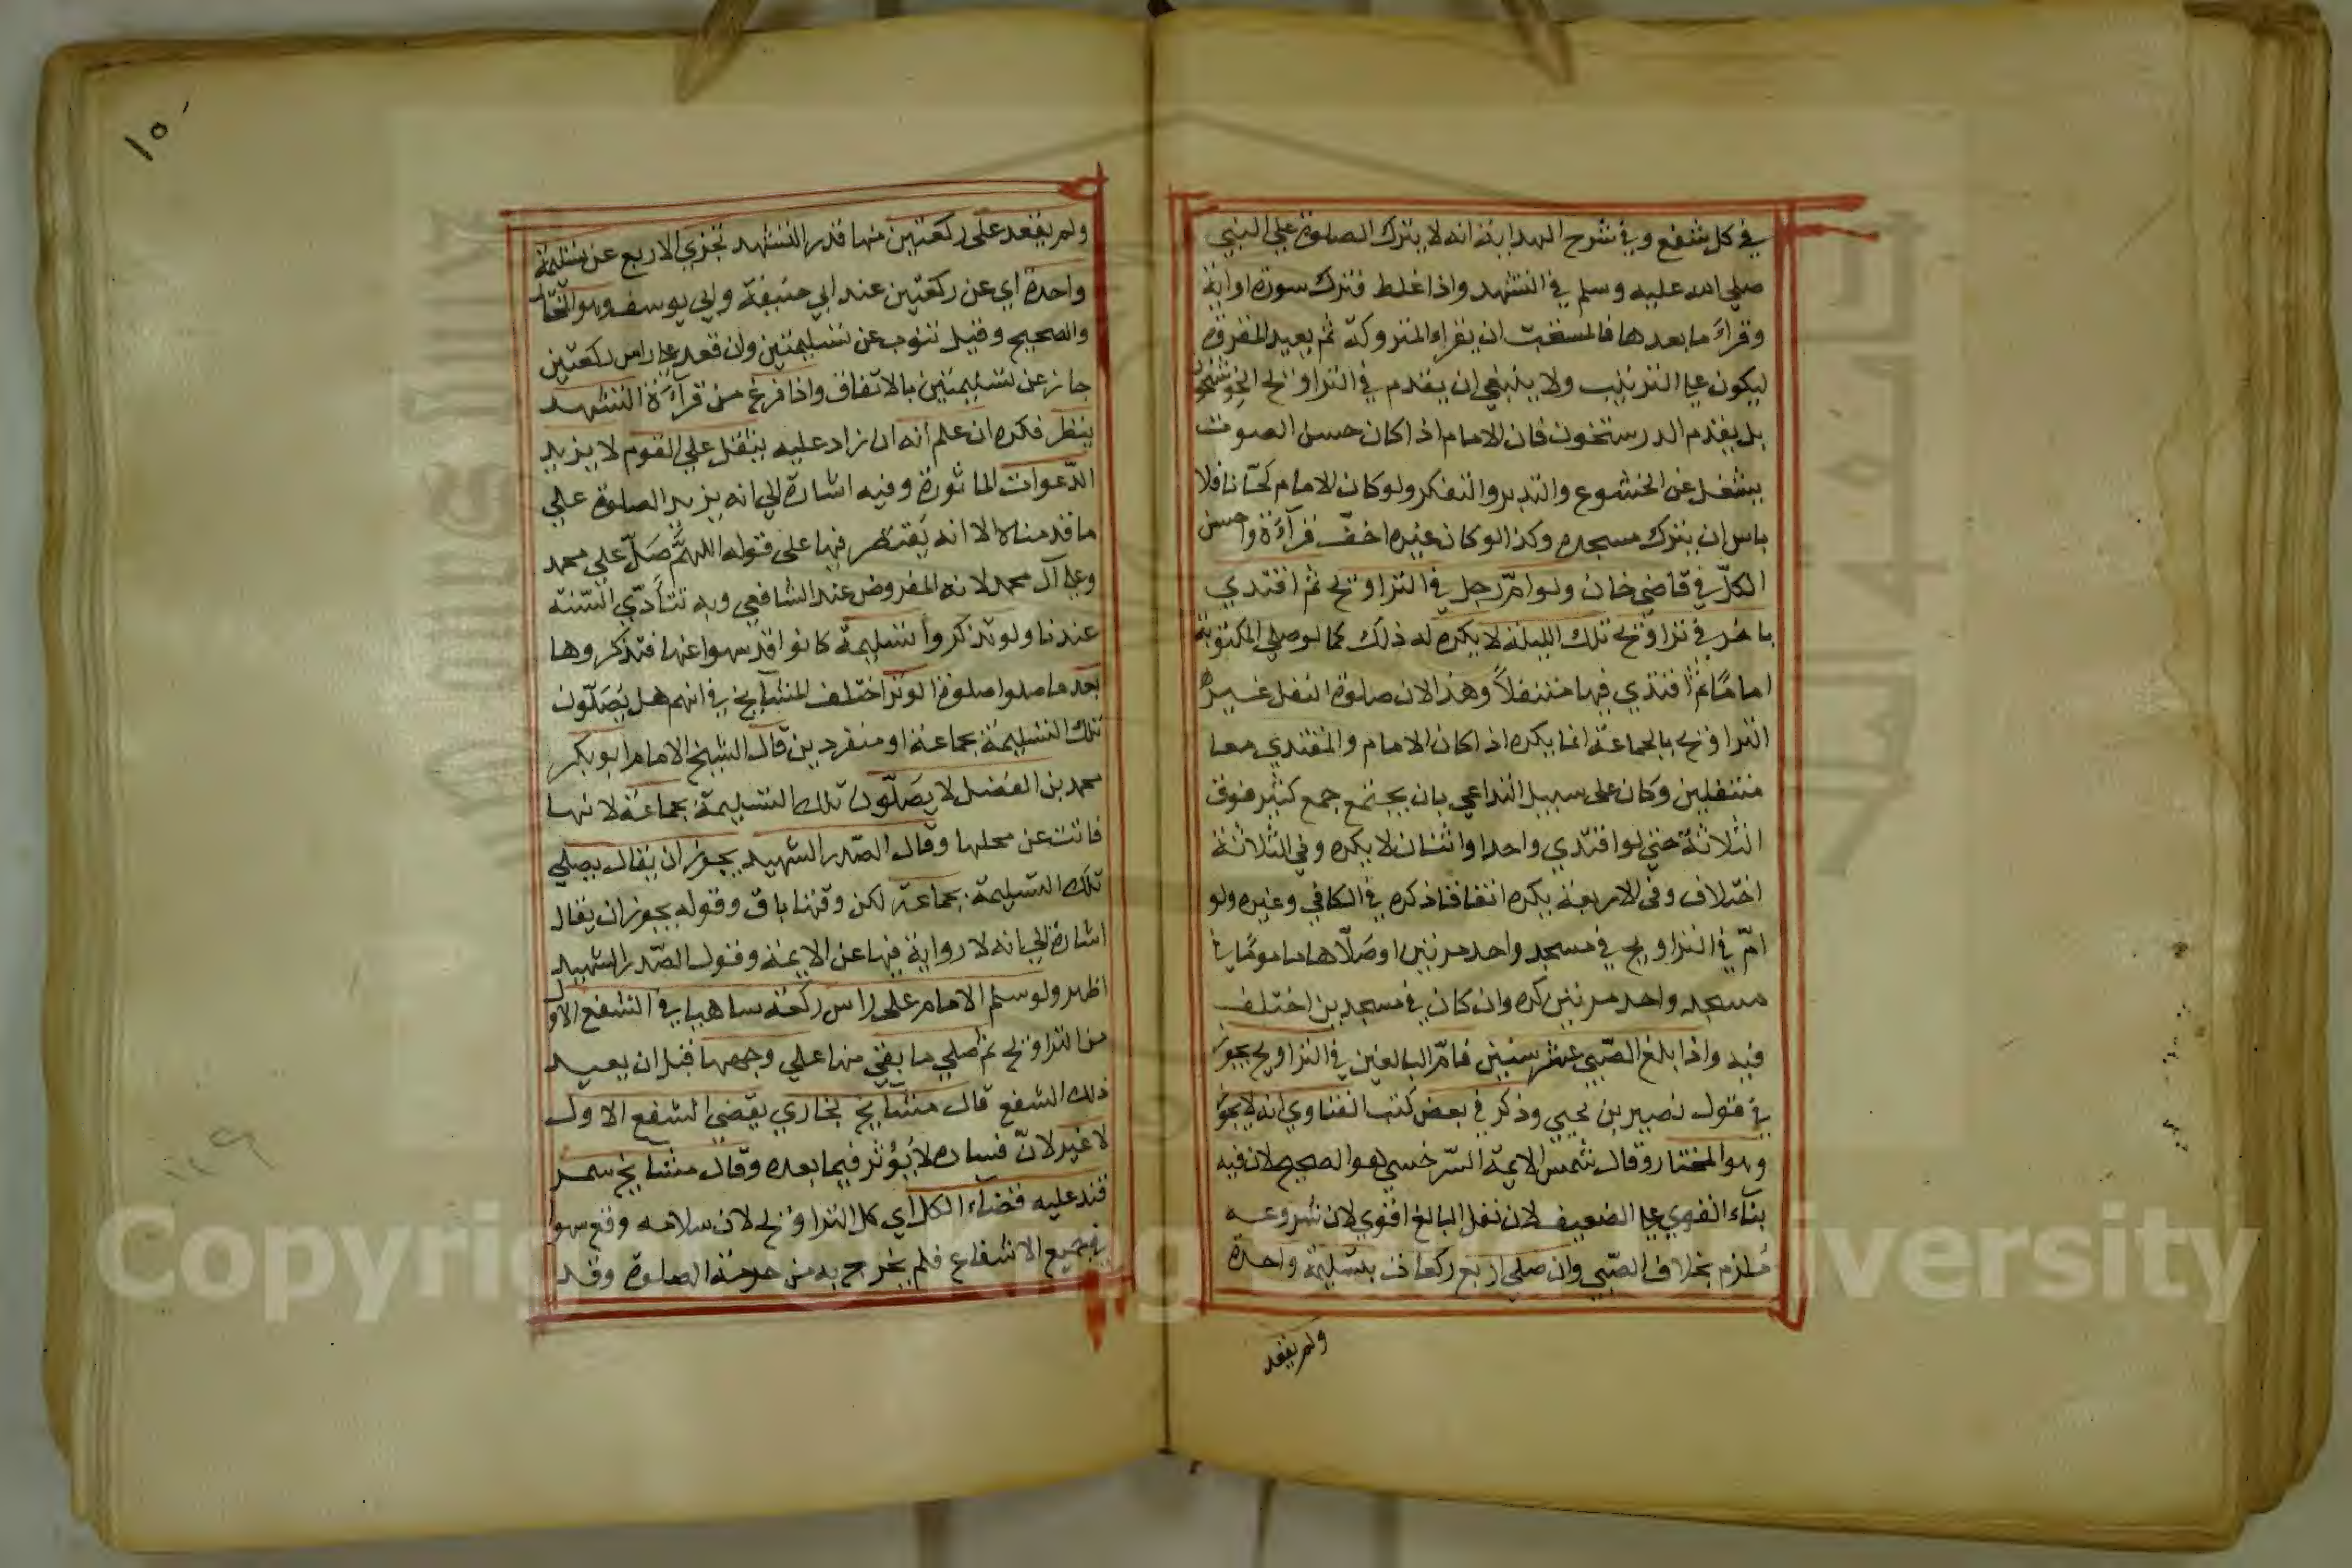 في كل شفع وفي شرح الهداية انه لا يترك الصلوة علي النبي
صلي الله عليه وسلم في التشهد واذا غلط فترك سورة او اية
وقراء ما بعدها فالمستحب ان يقراء المتروكة ثم يعيد المقروة
ليكون علي الترتيب ولا ينبغي ان يقدم في التراويح الخوشخوان
بل يقدم الدرستخوان فان الامام اذا كان حسن الصوت
يشغل عن الخشوع والتدبر والتفكر ولو كان الامام لحّانا فلا
باس ان يترك مسجده وكذا لو كان غيره اخفّ قرآءة واحسن
الكلّ في قاضي خان ولو امّ رجل في التراويح ثم اقتدي
باخر في تراويح تلك الليلة لا يكره له ذلك كما لو صلي المكتوبة
اماما ثم اقتدي فيها متنفلاً وهذا لان صلوة النفل غير
التراويح بالجماعة انما يكره اذا كان الامام والمقتدي معا
متنفلين وكان على سبيل التداعي بان يجتمع جمع كثير فوق
الثلاثة حتي لو اقتدي واحد او اثنان لا يكره وفي الثلاثة
اختلاف وفي الاربعة يكره اتفاقا ذكره في الكافي وغيره ولو
امّ في التراويح في مسجد واحد مرتين او صلّاها ماموما في
مسجد واحد مرتين كره وان كان في مسجدين اختلف
فيه واذا بلغ الصّبي عشر سنين فامّ البالغين في التراويح يجوز
في قول نصير بن يحيي وذكر في بعض كتب الفتاوي انه لا يجوز
وهو المختار وقال شمس الايمة السّرخسي هو الصحيح لان فيه
بناء القوي علي الضعيف لان نفل البالغ اقوي لان شروعه
مُلزم بخلاف الصّبي وان صلي اربع ركعات بتسليمة واحدة
ولم يقعد
١٥٠
ولم يقعد على ركعتين منها قدر التشهد تجزي الاربع عن تسليمة
واحدة اي عن ركعتين عند ابي حنيفة وابي يوسف وهو المختار
والصحيح وقيل تنوب عن تسليمتين وان قعد علي راس ركعتين
جاز عن تسليمتين بالاتفاق واذا فرغ من قرآءة التشهد
ينظر فكره ان علم انه ان زاد عليه يثقل علي القوم لا يزيد
الدّعوات الماثورة وفيه اشارة الي انه يزيد الصلوة علي
ما قدمناه الا انه يَقتصر فيها على قوله اللهمّ صَلّ علي محمد
وعلي آل محمد لانه المفروض عند الشافعي وبه تتأدّي السّنة
عندنا ولو تذكروا تسليمة كانوا قد سهوا عنها فتذكروها
بعد ما صلوا صلوة الوتر اختلف المشايخ في انهم هل يُصَلّون
تلك التسليمة بجماعة او منفردين قال الشيخ الامام ابو بكر
محمد بن الفضل لا يصَلّون تلك التسليمة بجماعة لانها
فاتت عن محلها وقال الصّدر الشهيد يجوز ان يقال يصلي
تلك التسليمة بجماعة لكن وقتها باق وقوله يجوز ان يقال
اشارة الي انه لا رواية فيها عن الايمة وقول الصّدر الشهيد
اظهر ولو سلم الامام على راس ركعة ساهيا في الشفع الاول
من التراويح ثم صلي ما بقي منها علي وجهها قبل ان يعيد
ذلك الشفع قال مشايخ بخاري يقضي الشفع الاول
لا غير لانّ فساده لا يُؤثر فيما بعده وقال مشايخ سمر
قند عليه قضآء الكل اي كل التراويح لان سلامه وقع سهوا
في جميع الاشفاع فلم يخرج به من حرمة الصلوة وقد
Copyright © King Saud University